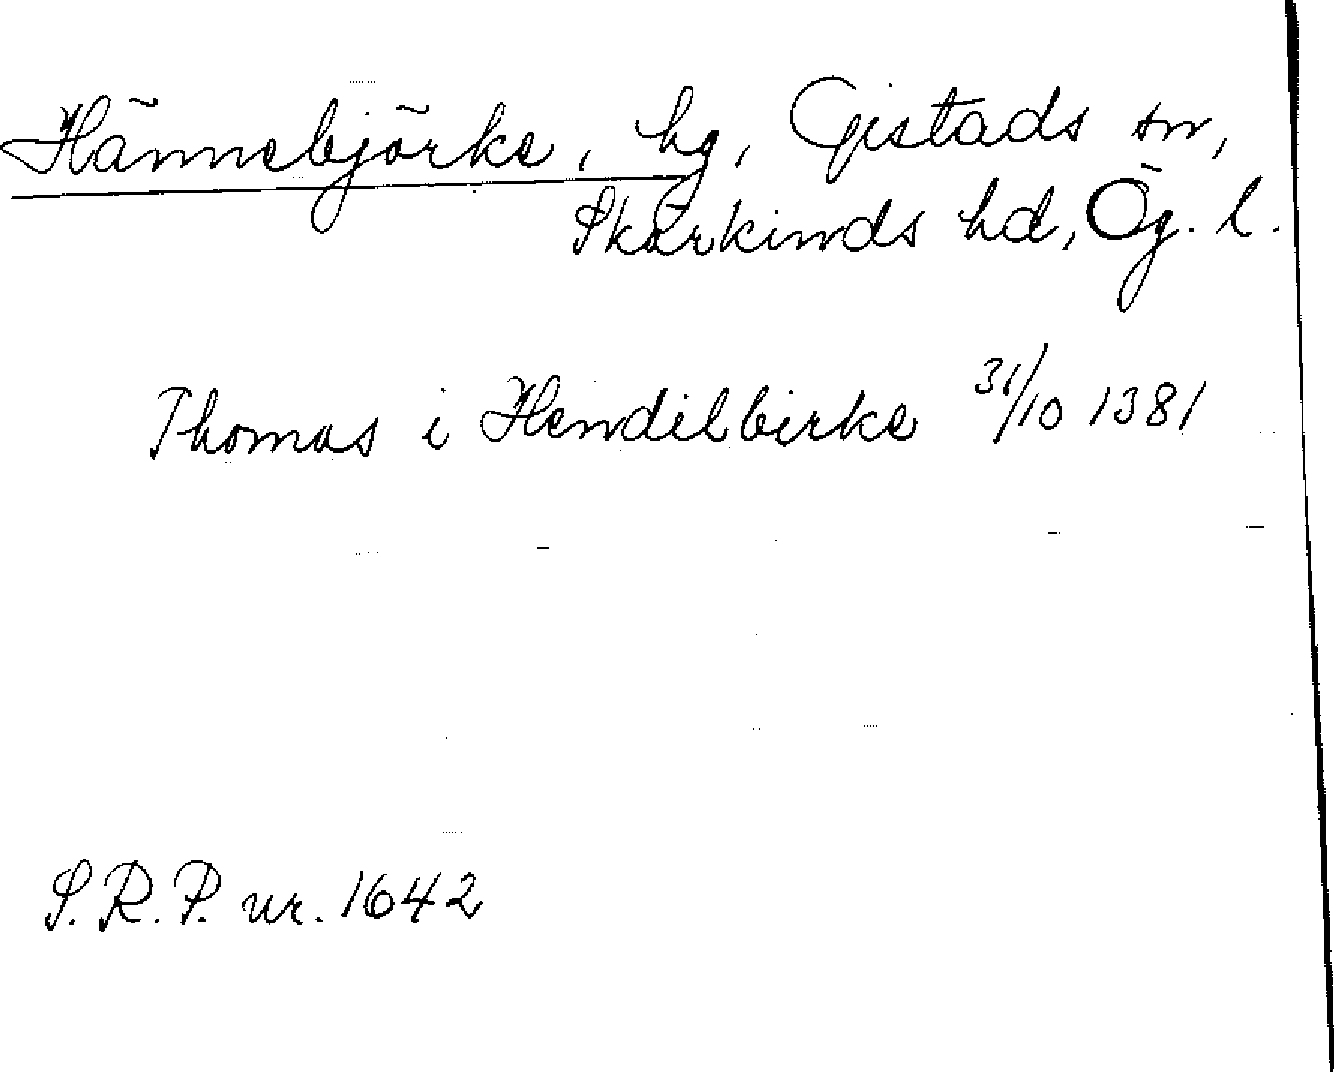 Hännebjörke, hg, Gistads sn,
Skärkinds hd, Ög. l.
Thomas i Hendilbirke 31/10 1381
S.R.P. nr. 1642